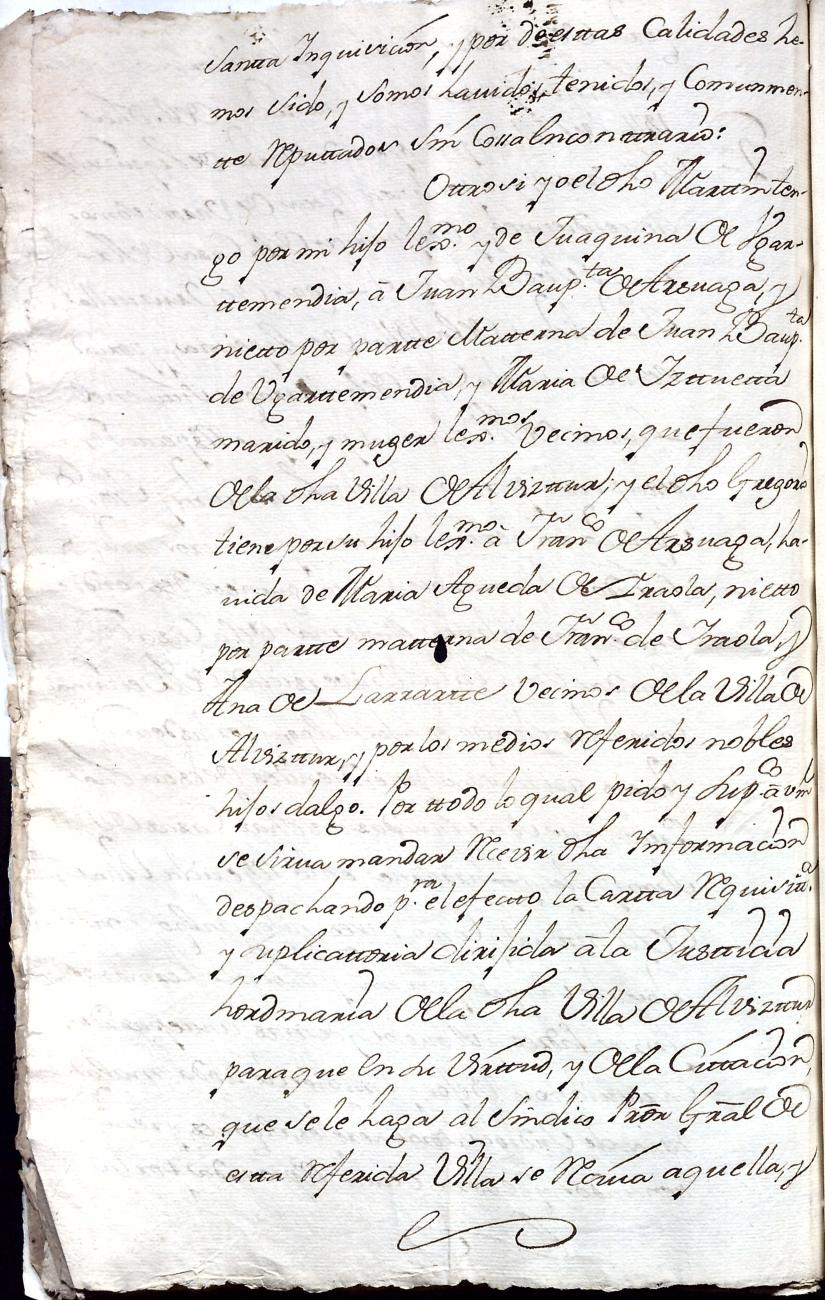 santta Inquisición, y por de esttas Calidades he-
mos sido, y somos havidos, tenidos, y Comunmen-
tte Reputtados sin Cossa en conttrario:
Ottrosi yo el dho Marttin ten-
go por mi hijo lexmo. y de Juaquina de Vgar-
ttemendia, â Juan Baup.ta de Arsuaga, y
nietto por partte Matterna de Juan Baup.ta
de Vgarttemendia, y Maria de Izttuetta
marido, y muger lexmos. Vecinos, que fueron
de la dha Villa de Alvizttur, y el dho Gregorio
tiene por su hijo lexmo. â Franco. de Arsuaga, ha-
uida de Maria Agueda de Iraola, nietto
por partte matterna de Franco. de Iraola, y
Ana de Larrartte Vecinos de la Villa de
Alvizttur, y por los medios Referidos nobles
hijos dalgo. Por ttodo lo qual pido y Supco. â vm
se sirua mandar Recivir dha Informacion
despachando p.ra el efectto la Cartta Requisitta.
y suplicattoria dirijida â la Justticia
hordinaria de la dha Villa de Alvizttur
para que en su Virttud, y de la Cittacion,
que se le haga al Sindico Prõr Grãl de
estta Referida Villa se Reciva aquella, y